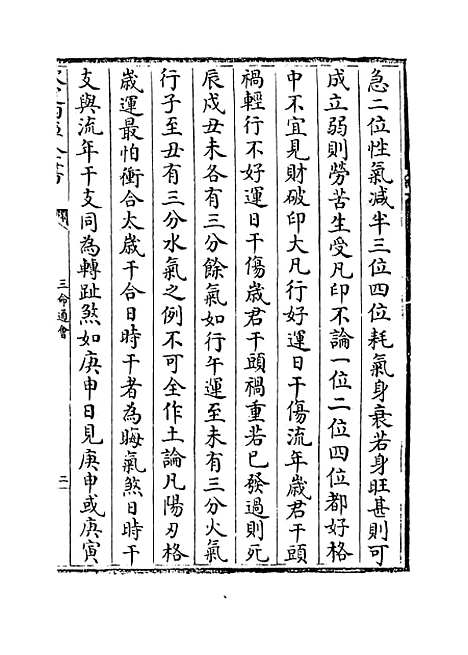 急二位性氣減半三位四位耗氣身衰若身旺甚則可
成立弱則勞苦生受凡印不論一位二位四位都好格
中不宜見財破印大凡行好運日干傷流年歲君干頭
禍輕行不好運日干傷歲君干頭禍重若已發過則死
辰戌丑未各有三分餘氣如行午運至未有三分火氣
行子至丑有三分水氣之例不可全作土論凡陽刃格
歲運最怕衝合太歲干合日時干者為晦氣煞日時干
支與流年干支同為轉趾煞如庚申日見庚申或庚寅
三命通會
二一